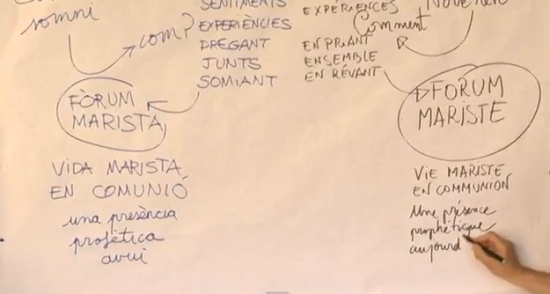 somni
com?
SENTIMENTS
EXPERIÈNCIES
PREGANT
JUNTS
SOMIANT
FÒRUM
MARISTA
VIDA MARISTA
EN COMUNIÓ
una presència
profètica
avui
EXPÉRIENCES
Comment
EN PRIANT
ENSEMBLE
EN RÊVANT
FORUM
MARISTE
VIE MARISTE
EN COMMUNION
Une présence
prophétique
aujourd